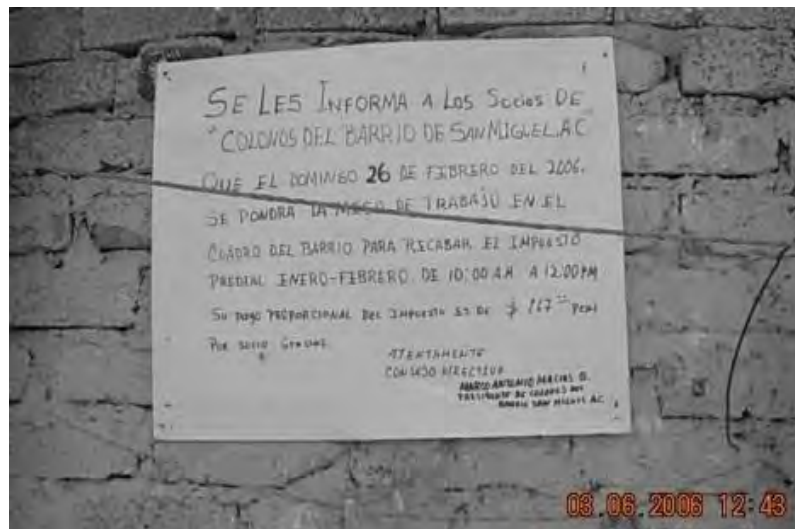 SE LES INFORMA A LOS SOCIOS DE
"COLONOS DEL BARRIO DE SAN MIGUEL, A.C
QUE EL DOMINGO 26 DE FEBRERO DEL 2006.
SE PONDRA LA MESA DE TRABAJO EN EL
CUADRO DEL BARRIO PARA RECABAR EL IMPUESTO
PREDIAL ENERO-FEBRERO. DE 10:00 AM A 12:00 PM
SU PAGO PROPORCIONAL DEL IMPUESTO ES DE $
POR SOCIO GRACIAS.
ATENTAMENTE
CONSEJO DIRECTIVO
MARCO ANTONIO MACIAS
PRESIDENTE DE COLONOS DEL
BARRIO SAN MIGUEL A.C
03.06.2006 12:43